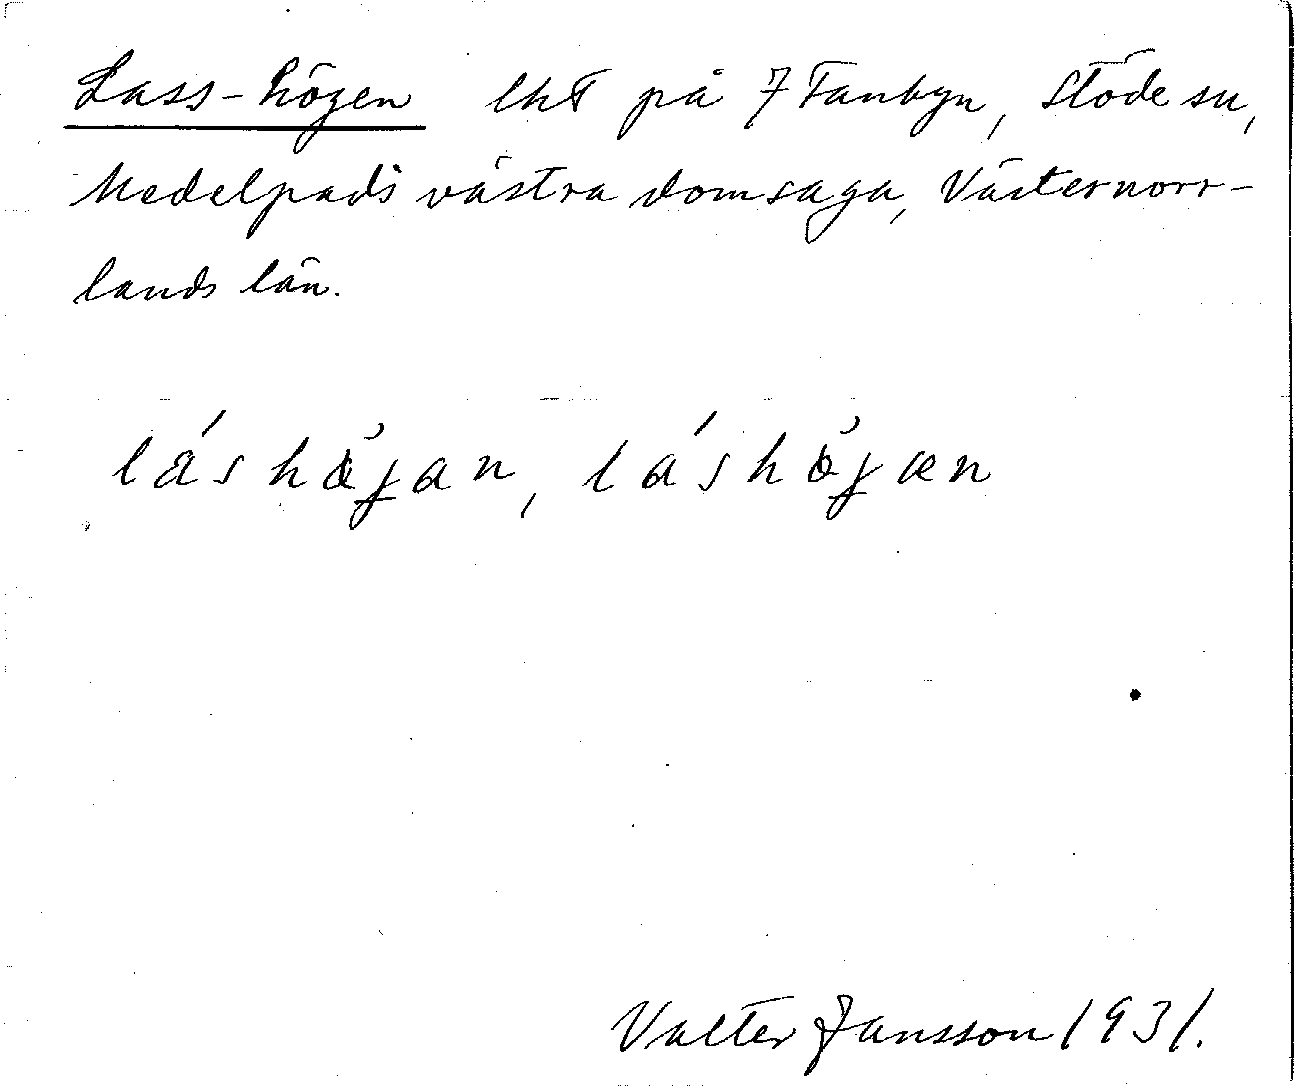 Lass-högen lht på 7 Fanbyn, Stöde sn,
Medelpads västra domsaga, Västernorr-
lands län.
láshö̀jan, láshö̀jæn
Valter Jansson 1931.